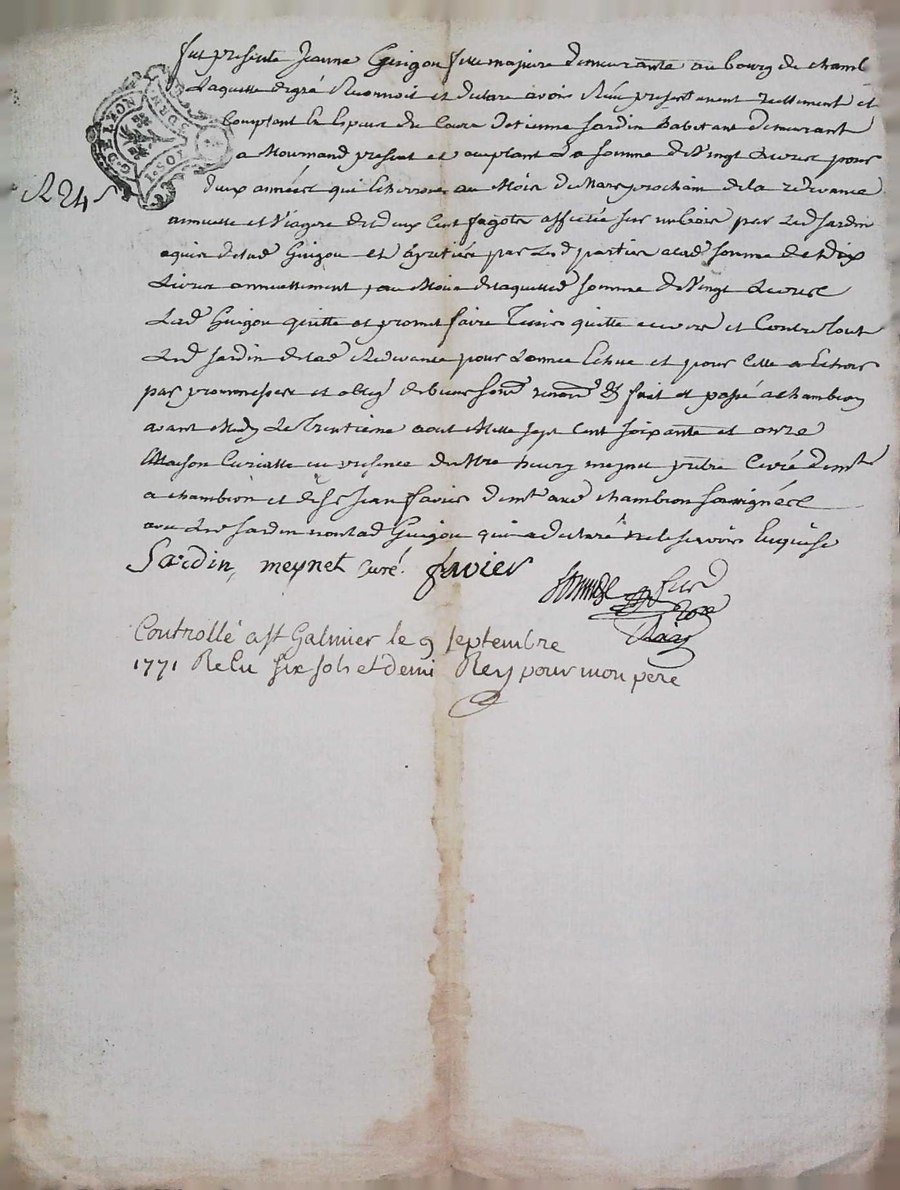 G. DE LYON
1. SOL
R 24
fut presente Jeanne Guigou fille majeure demeurante au bourg de chamb
Laquelle de gré Reconnoit et declare avoir Reçu presentement reellement et
Comptant En Especes du Cours d'etienne Jardin habitant demeurant
a Mournand present et acceptant La somme de Vingt Livres pour
deux années qui Echerront au Mois de Mars prochain de la redevance
annuelle et Viagere de deux Cent fagots affectée sur un bois par Led Jardin
aquis de lad Guigou et par Lesd parties a lad somme de Dix
Livres annuellement, au Moien de laquelle somme de Vingt Livres
Lad Guigou quitte et promet faire Tenir quitte envers et Contre tout
Led Jardin de lad Redevance pour L'année Echue et pour Celle a Echoir
par prommesses et oblig de biens soum renonc &c fait et passé a Chambion
avant Midy Le Trentieme aout Mille sept Cent soixante et onze
Maison Curialle en presence de Mre henry meynet prêtre Curé demt
a chambion et de Sr Jean favier demt aud chambion soussignés
avec Led Jardin non lad Guigou qui a declaré ne le sçavoir Enquise
Jardin, meynet curé. favier
Controllé a St Galmier le 9 septembre
1771 Reçu six sols et demi Rey pour mon pere